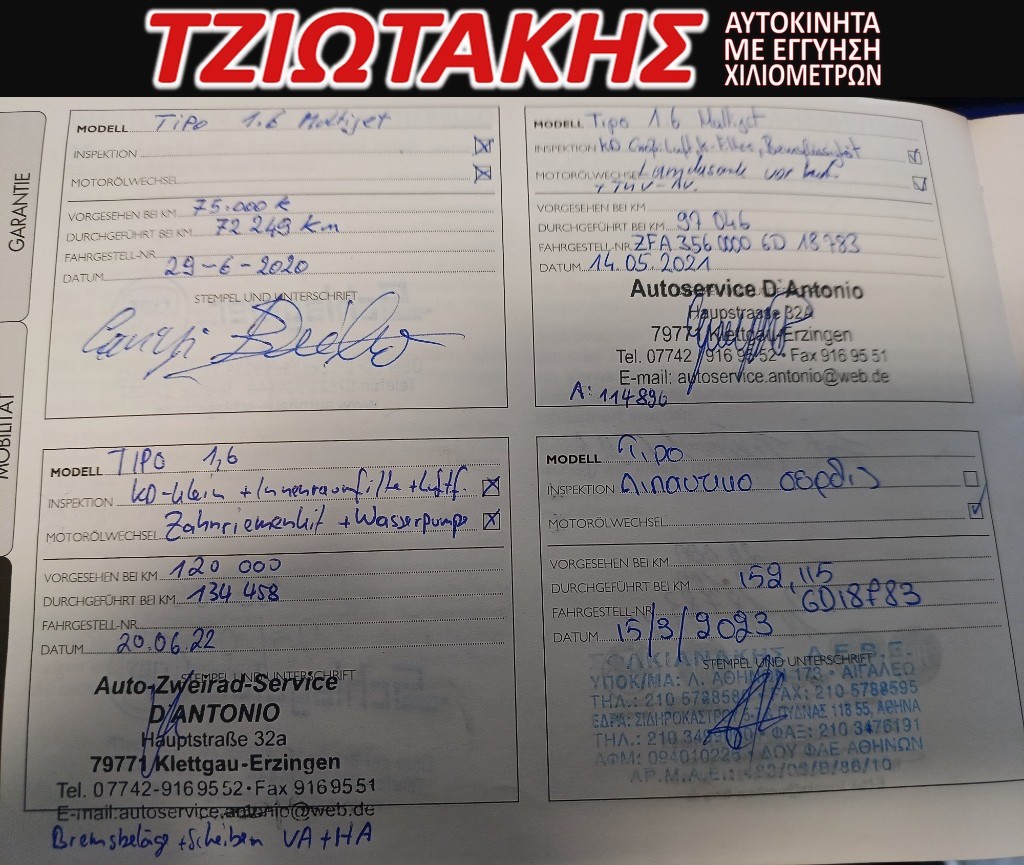 ΤΖΙΩΤΑΚΗΣ
ΑΥΤΟΚΙΝΗΤΑ
ΜΕ ΕΓΓΥΗΣΗ
ΧΙΛΙΟΜΕΤΡΩΝ
GARANTIE
MOBILITÄT
MODELL TIPO 1.6 Multijet
INSPEKTION
MOTORÖLWECHSEL
VORGESEHEN BEI KM 75.000 k
DURCHGEFÜHRT BEI KM 72 249 km
FAHRGESTELL-NR.
DATUM 29-6-2020
STEMPEL UND UNTERSCHRIFT
MODELL Tipo 1.6 Multijet
INSPEKTION KD
MOTORÖLWECHSEL vor
+ TÜV-AU.
VORGESEHEN BEI KM
DURCHGEFÜHRT BEI KM 97 046
FAHRGESTELL-NR. ZFA 356 0000 6D 18783
DATUM 14.05.2021
STEMPEL UND UNTERSCHRIFT
Autoservice D'Antonio
Haupstrasse 32A
79771 Klettgau-Erzingen
Tel. 07742 / 916 95 52 · Fax 916 95 51
E-mail: autoservice.antonio@web.de
A: 114896
MODELL TIPO 1,6
INSPEKTION KD-klein + Innenraumfilter + Luftf.
MOTORÖLWECHSEL Zahnriemenkit + Wasserpumpe
VORGESEHEN BEI KM 120 000
DURCHGEFÜHRT BEI KM 134 458
FAHRGESTELL-NR.
DATUM 20.06.22
STEMPEL UND UNTERSCHRIFT
Auto-Zweirad-Service
D'ANTONIO
Hauptstraße 32a
79771 Klettgau-Erzingen
Tel. 07742-9169552 · Fax 9169551
E-mail:autoservice.antonio@web.de
Bremsbeläge + Scheiben VA + HA
MODELL Tipo
INSPEKTION Λιπαντικο σερβις
MOTORÖLWECHSEL
VORGESEHEN BEI KM
DURCHGEFÜHRT BEI KM 152,115
FAHRGESTELL-NR. 6D18783
DATUM 15/3/2023
STEMPEL UND UNTERSCHRIFT
Α.Ε.Β.Ε.
ΥΠΟΚ/ΜΑ: Λ. ΑΘΗΝΩΝ 173 · ΑΙΓΑΛΕΩ
ΤΗΛ.: 210 FAX: 210 5788595
ΕΔΡΑ: ΠΥΔΝΑΣ 118 55, ΑΘΗΝΑ
ΤΗΛ.: 210 ΦΑΞ: 210 3476191
ΑΦΜ: ΔΟΥ ΦΑΕ ΑΘΗΝΩΝ
ΑΡ.Μ.Α.Ε.: